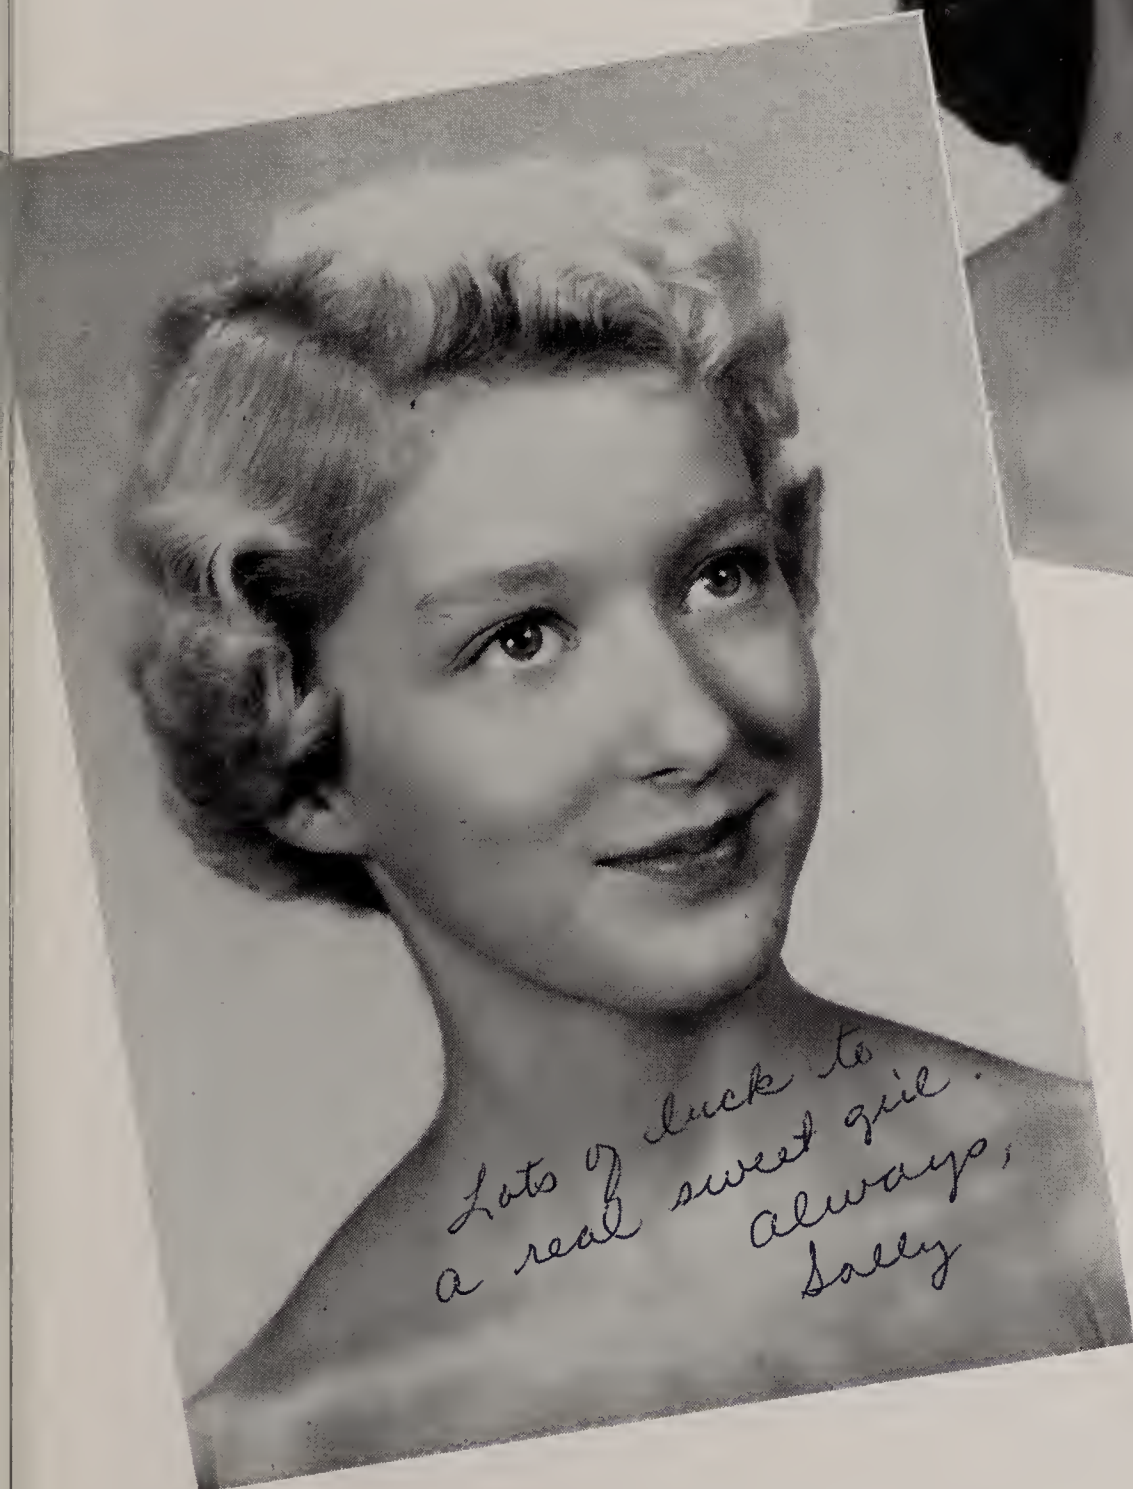 Lots of luck to
a real sweet girl.
Always,
Sally